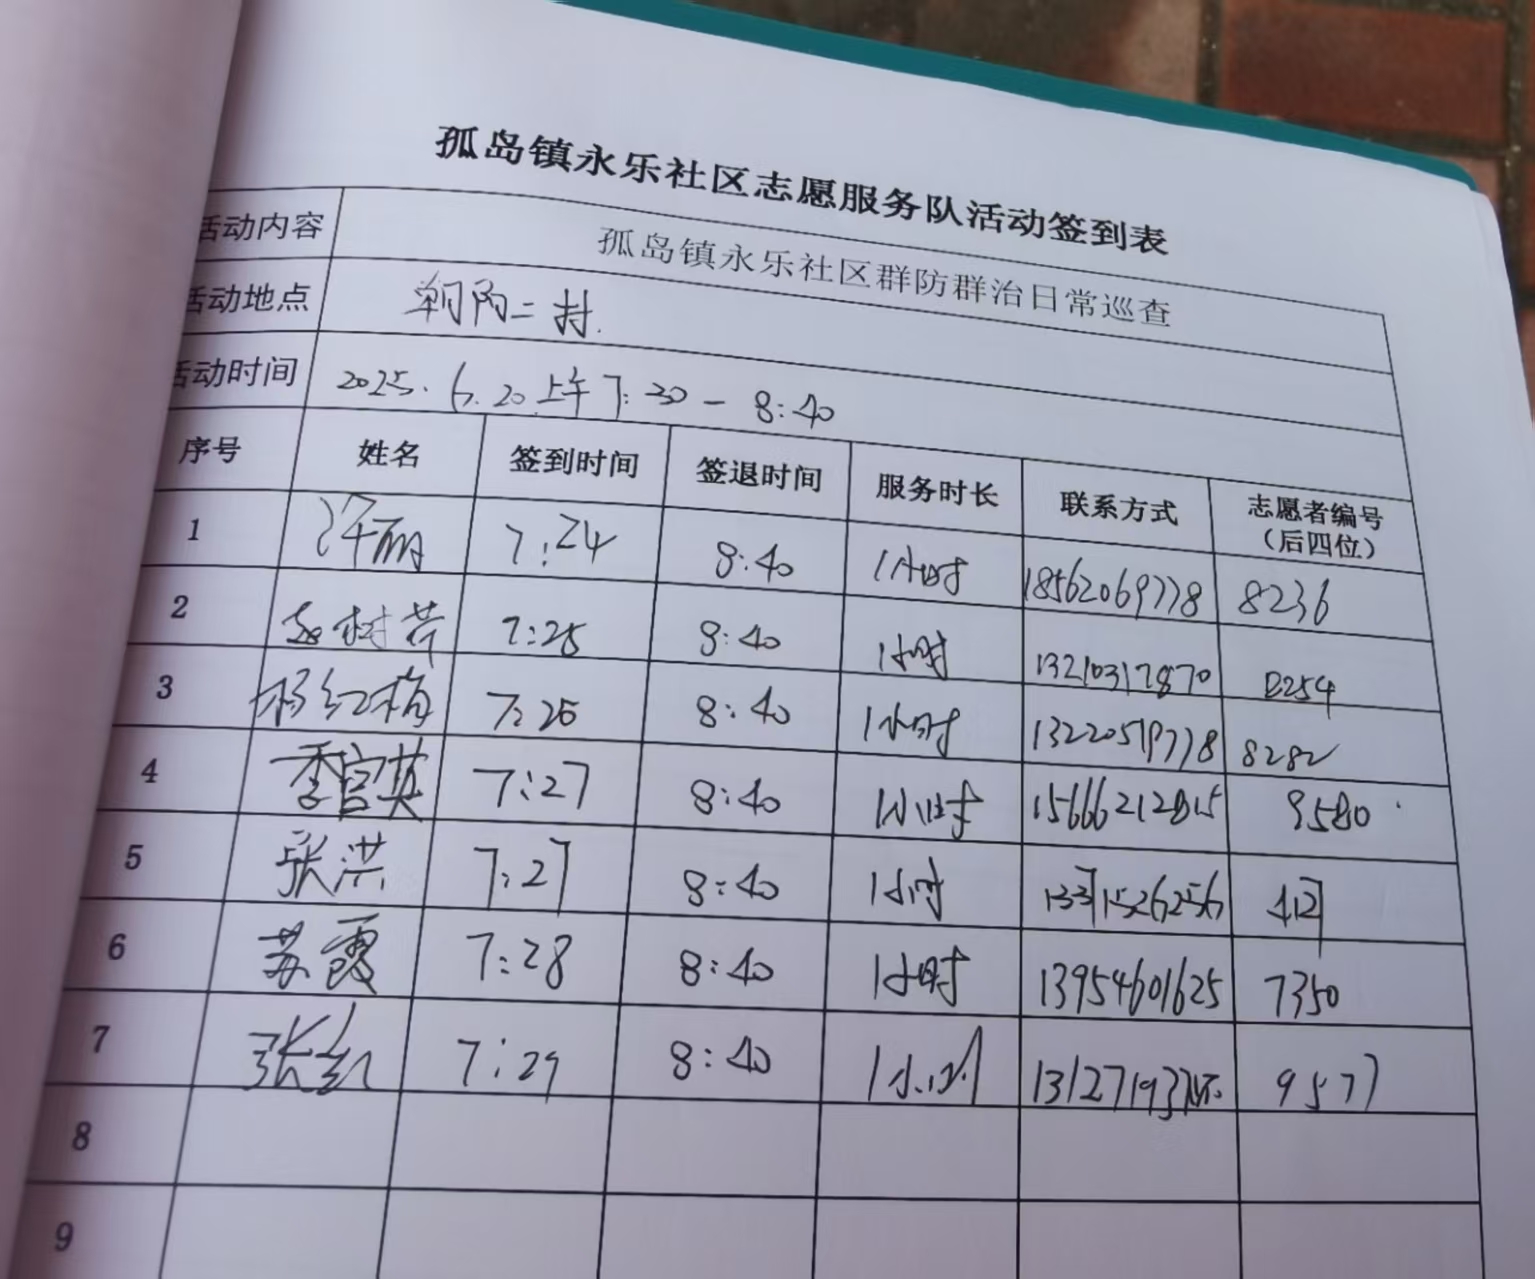 孤岛镇永乐社区志愿服务队活动签到表
活动内容 孤岛镇永乐社区群防群治日常巡查
活动地点 朝阳二村.
活动时间 2025.6.20上午7:30-8:40
序号 姓名 签到时间 签退时间 服务时长 联系方式 志愿者编号（后四位）
1 许丽 7:24 8:40 1小时 18562069778 8236
2 赵树芳 7:25 8:40 1小时 13210317870 8254
3 杨红梅 7:26 8:40 1小时 13220519778 8282
4 季官英 7:27 8:40 1小时 15666212815 9580
5 张洪 7:27 8:40 1小时 13371526256
6 苏霞 7:28 8:40 1小时 13954601625 7350
7 张红 7:29 8:40 1小时 9577
8
9